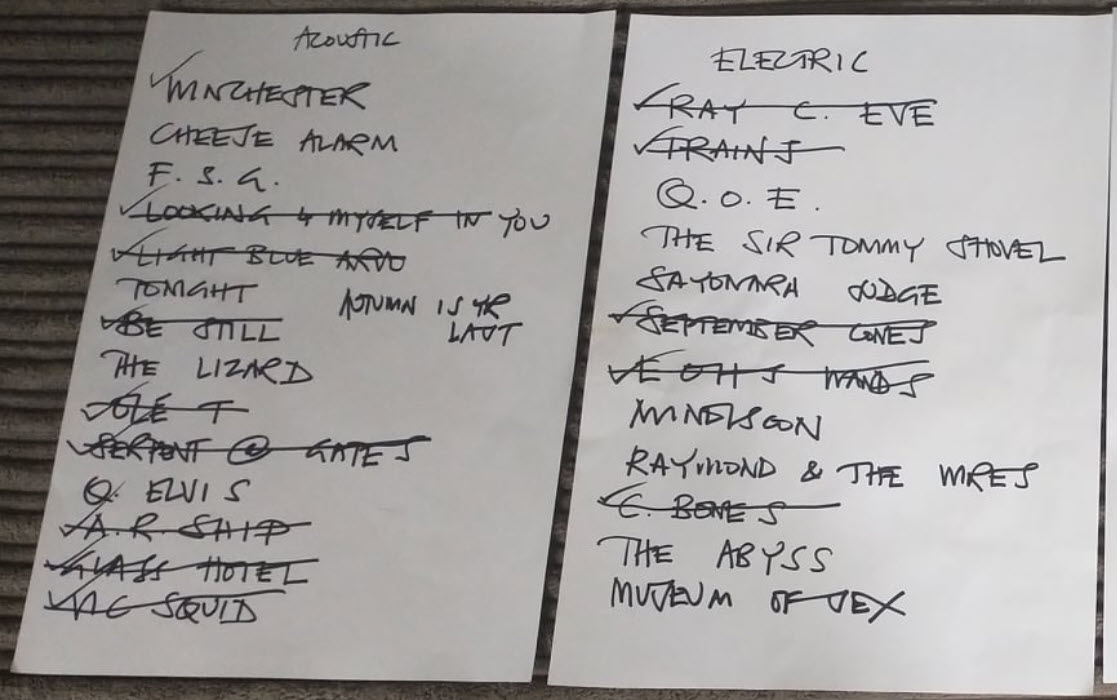 ACOUSTIC
WINCHESTER
CHEESE ALARM
F. S. G.
LOOKING 4 MYSELF IN YOU
LIGHT BLUE
TONIGHT
AUTUMN IS YR
LAST
BE STILL
THE LIZARD
OLE T
SERPENT @ GATES
Q. ELVIS
A. R. SHIP
GLASS HOTEL
SQUID
ELECTRIC
RAY C. EVE
TRAINS
Q. O. E.
THE SIR TOMMY SHOVEL
SAYONARA JUDGE
SEPTEMBER CONES
WANDS
RAYMOND & THE WIRES
C. BONES
THE ABYSS
MUSEUM OF SEX